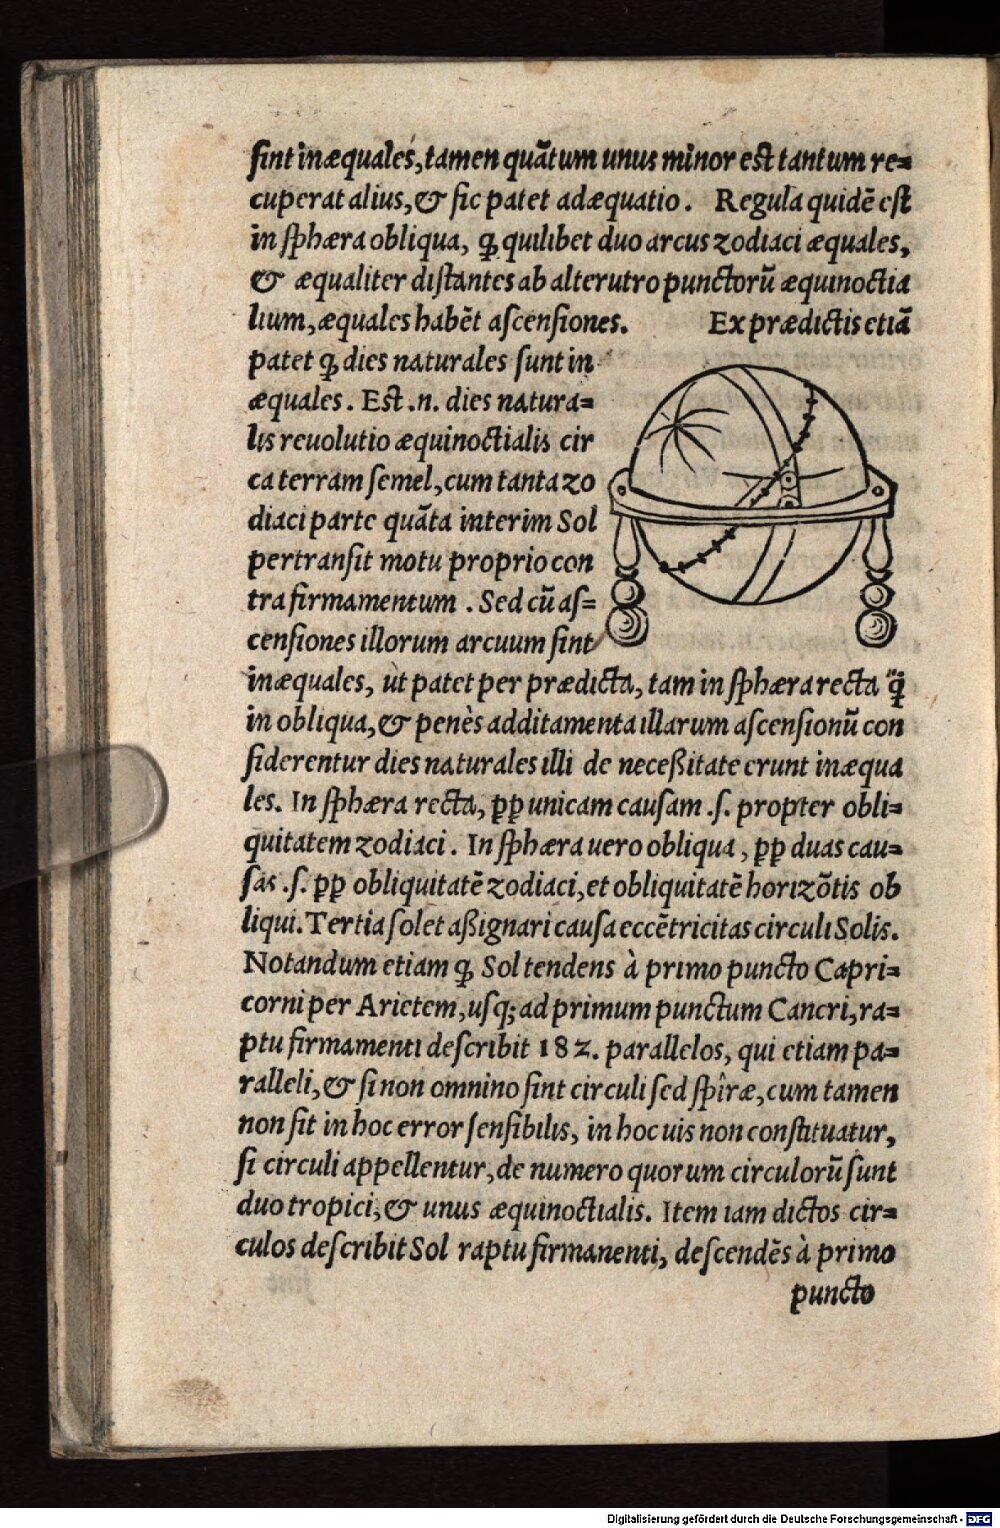 ſint inæquales, tamen quãtum unus minor est tantum re=
cuperat alius, & ſic patet adæquatio. Regula quidẽ eſt
in ſphæra obliqua, ꝙ quilibet duo arcus zodiaci æquales,
& æqualiter diſtantes ab alterutro punctorũ æquinoctia
lium, æquales habẽt aſcenſiones. Ex prædictis etiã
patet ꝙ dies naturales ſunt in
æquales. Eſt .n. dies natura=
lis reuolutio æquinoctialis cir
ca terram ſemel, cum tanta zo
diaci parte quãta interim Sol
pertranſit motu proprio con
tra firmamentum. Sed cũ aſ=
cenſiones illorum arcuum ſint
inæquales, ut patet per prædicta, tam in ſphæra recta q̃
in obliqua, & penès additamenta illarum aſcenſionũ con
ſiderentur dies naturales illi de neceßitate erunt inæqua
les. In ſphæra recta, ꝓꝑ unicam cauſam .ſ. propter obli=
quitatem zodiaci. In ſphæra uero obliqua, ꝓꝑ duas cau=
ſas .ſ. ꝓꝑ obliquitatẽ zodiaci, et obliquitatẽ horizõtis ob
liqui. Tertia ſolet aßignari cauſa eccẽtricitas circuli Solis.
Notandum etiam ꝙ Sol tendens à primo puncto Capri=
corni per Arietem, uſq; ad primum punctum Cancri, ra=
ptu firmamenti deſcribit 182. parallelos, qui etiam pa=
ralleli, & ſi non omnino ſint circuli ſed ſpîræ, cum tamen
non ſit in hoc error ſenſibilis, in hoc uis non conſtituatur,
ſi circuli appellentur, de numero quorum circulorũ ſunt
duo tropici, & unus æquinoctialis. Item iam dictos cir=
culos deſcribit Sol raptu firmanenti, deſcendẽs à primo
puncto
Digitalisierung gefördert durch die Deutsche Forschungsgemeinschaft - DFG